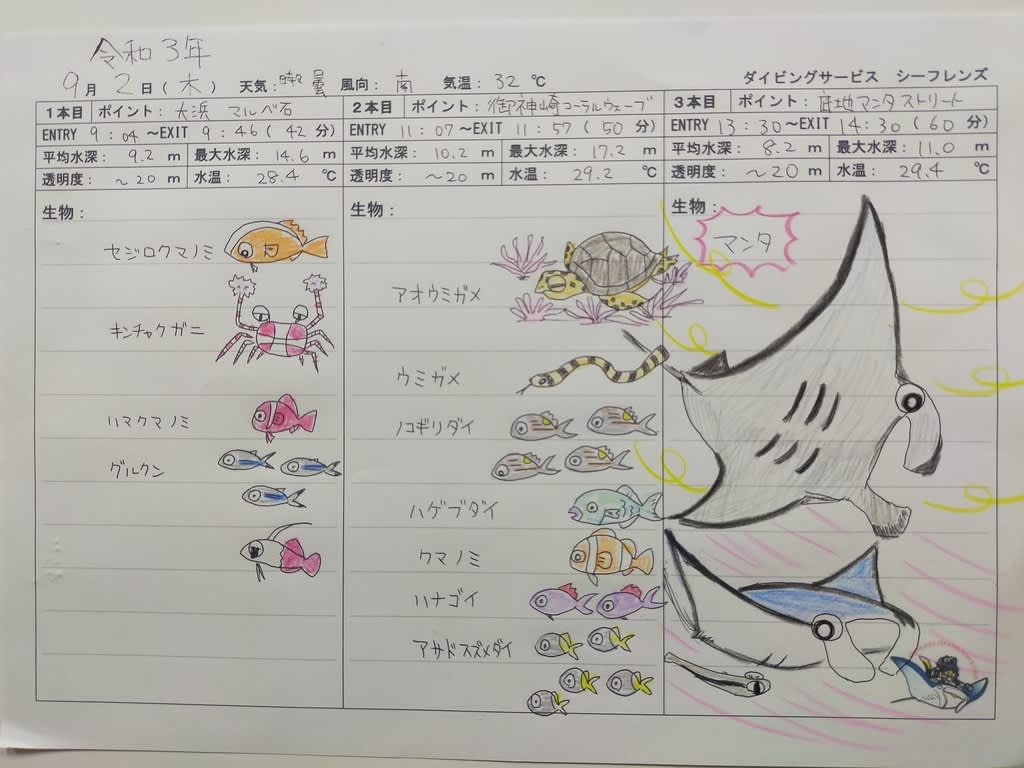 令和3年
9月2日(木) 天気: 晴 曇 風向: 南 気温: 32℃
ダイビングサービス シーフレンズ
1本目 ポイント: 大浜 マルベ石
ENTRY 9:04~EXIT 9:46(42分)
平均水深: 9.2 m 最大水深: 14.6 m
透明度: ~20 m 水温: 28.4 ℃
生物:
セジロクマノミ
キンチャクガニ
ハマクマノミ
グルクン
2本目 ポイント: 御神崎コーラルウェーブ
ENTRY 11:07~EXIT 11:57(50分)
平均水深: 10.2 m 最大水深: 17.2 m
透明度: ~20 m 水温: 29.2 ℃
生物:
アオウミガメ
ウミガメ
ノコギリダイ
ハゲブダイ
クマノミ
ハナゴイ
アサドスズメダイ
3本目 ポイント: 底地マンタストリート
ENTRY 13:30~EXIT 14:30(60分)
平均水深: 8.2 m 最大水深: 11.0 m
透明度: ~20 m 水温: 29.4 ℃
生物:
マンタ